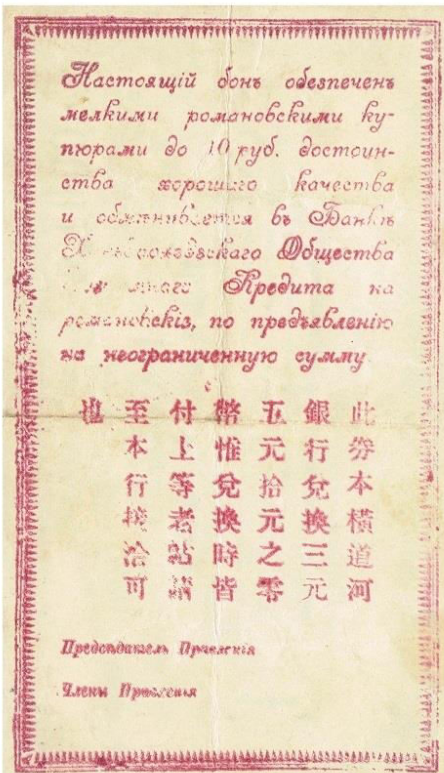 Настоящій бонъ обезпеченъ
мелкими романовскими ку-
пюрами до 10 руб. достоин-
ства хорошаго качества
и обмѣнивается въ Банкѣ
Общества
Кредита на
романовскія, по предъявленію
на неограниченную сумму.
此券本橫道河
銀行兌換三元
五元拾元之零
幣惟兌換時皆
付上等老帖請
至本行接洽可
也
Предсѣдатель Правленія
Члены Правленія